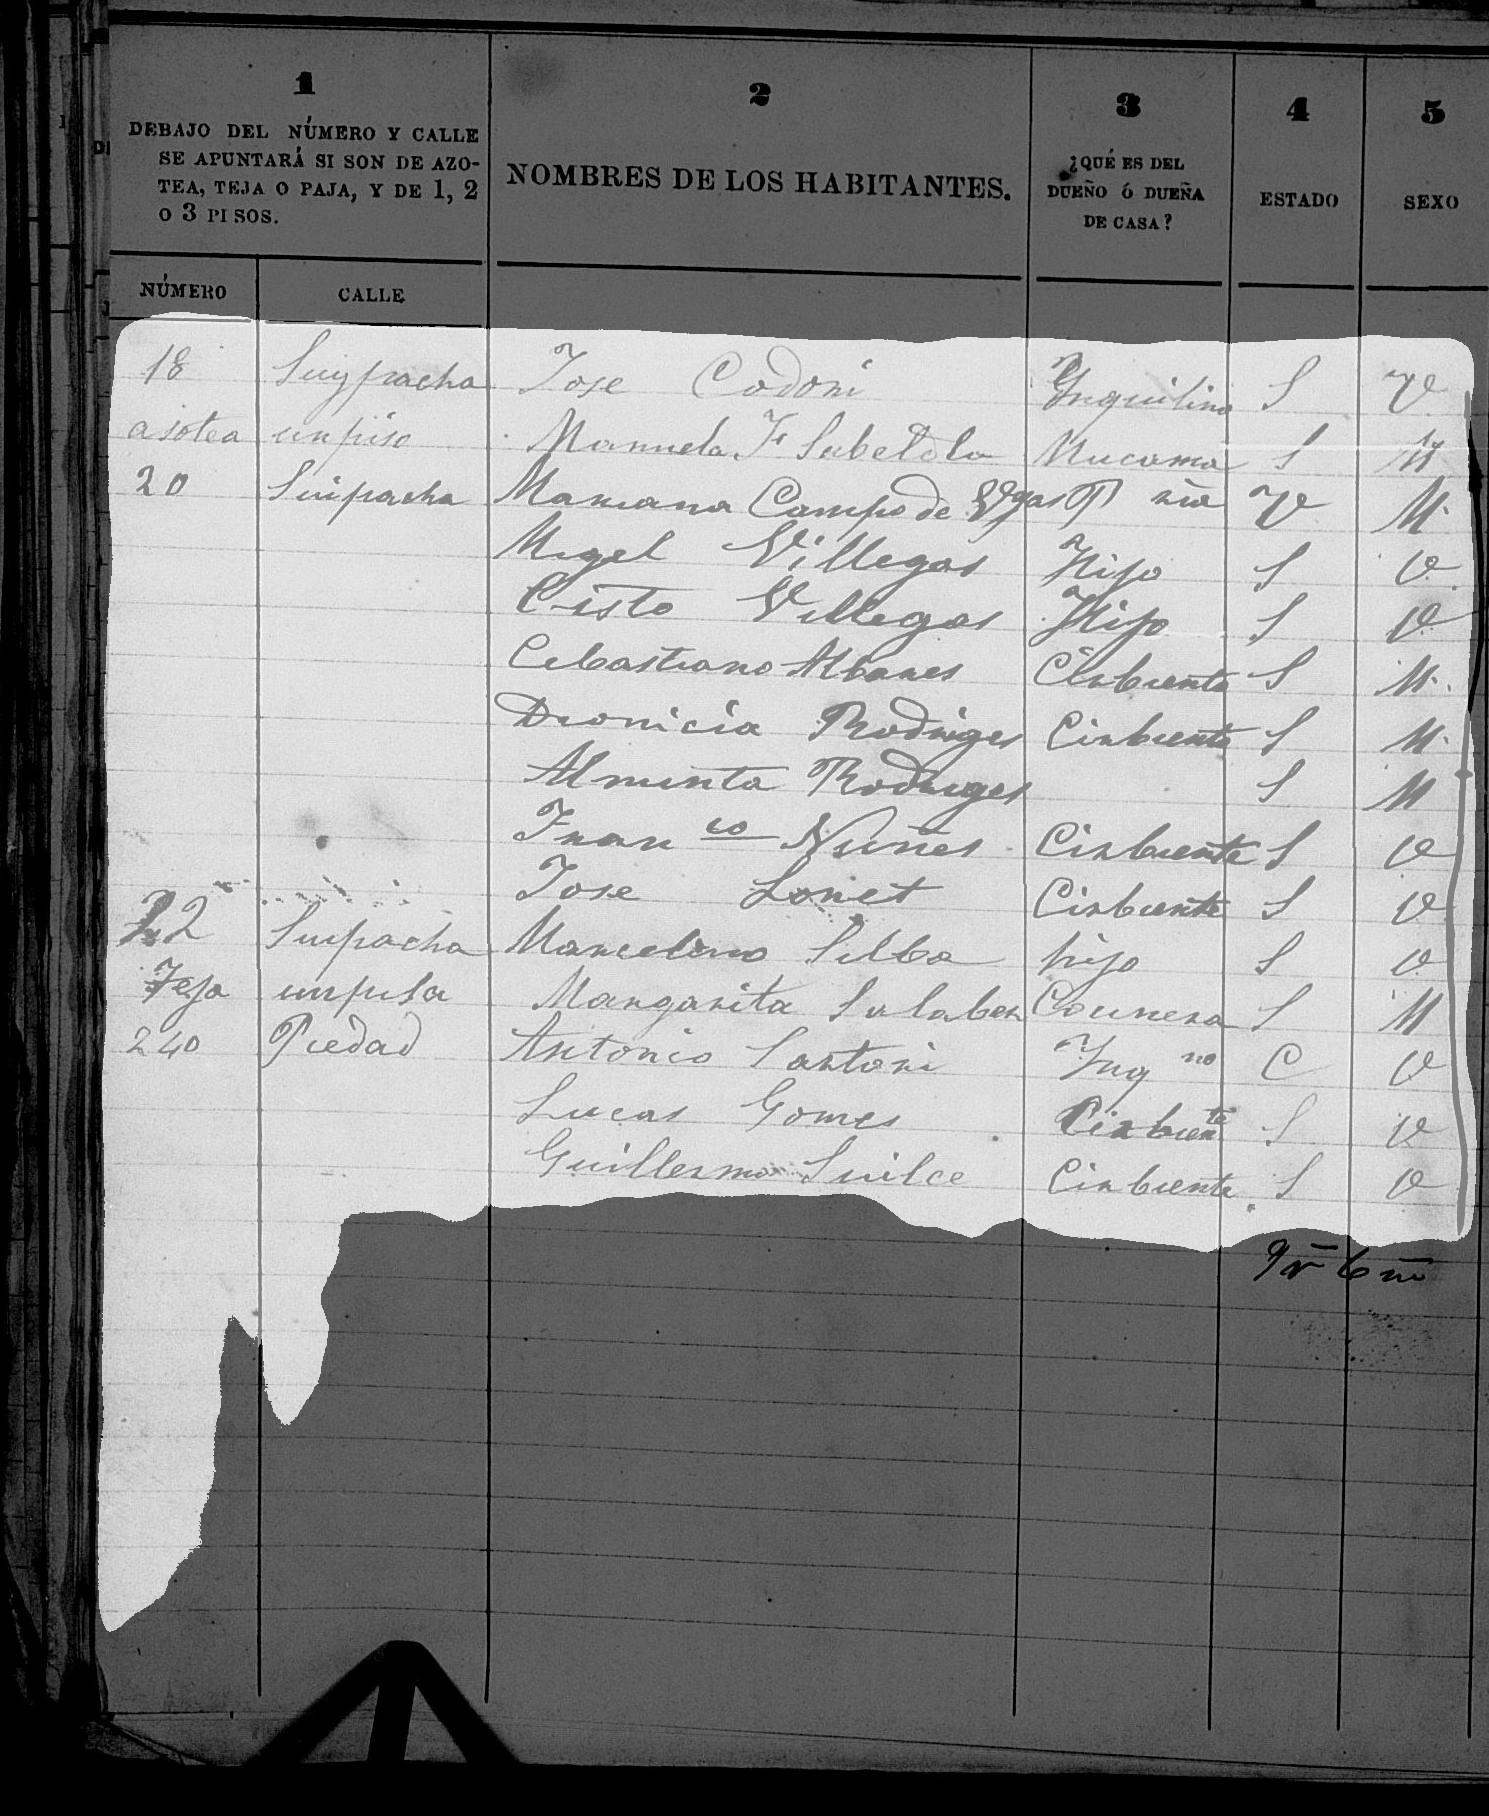 1 2 3 4 5
DEBAJO DEL NÚMERO Y CALLE
SE APUNTARÁ SI SON DE AZO-
TEA, TEJA O PAJA, Y DE 1, 2
O 3 PISOS.
NOMBRES DE LOS HABITANTES.
¿QUÉ ES DEL
DUEÑO Ó DUEÑA
DE CASA?
ESTADO
SEXO
NÚMERO CALLE
18 Suypacha Jose Codoni Ynquilino S V
asotea un piso Manuela F Mucama S M
20 Suipacha Mariana Campo de Vgas P ria V M
Migel Villegas Hijo S V
Cisto Villegas Hijo S V
Cebastiana Albares Cirbienta S M
Dionicia Rodriges Cirbienta S M
Rodriges S M
Fran co Nuñes Cirbiente S V
Jose Lonet Cirbiente S V
22 Suipacha Marcelino Silba hijo S V
Teja un pisa Margarita Salaber Cosinera S M
240 Piedad Antonio Santoni Inq no C V
Lucas Gomes Cirbien te S V
Guillermo Cirbiente S V
9 v 6 m